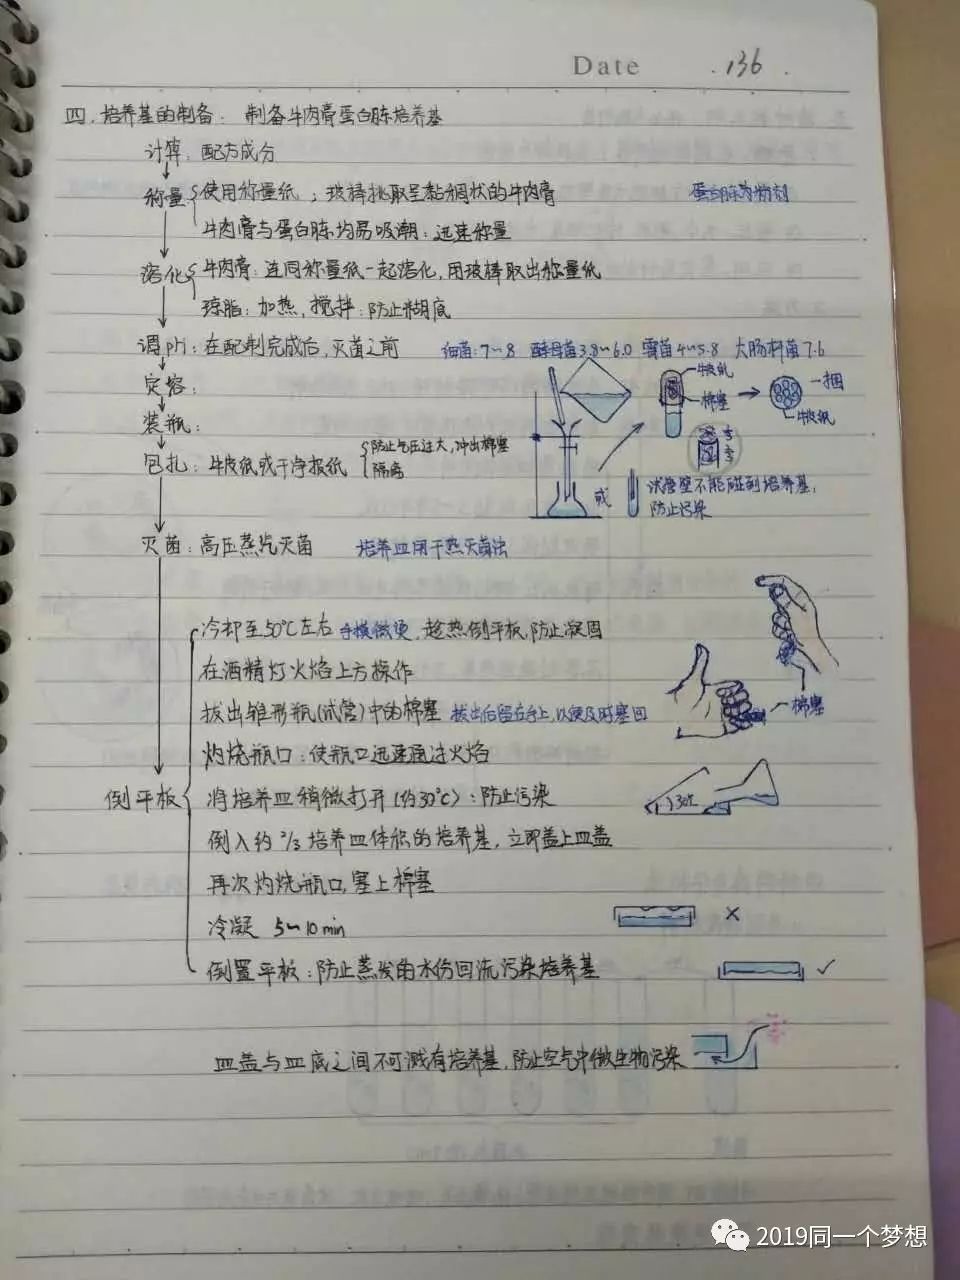 Date 136
四.培养基的制备: 制备牛肉膏蛋白胨培养基
计算: 配方成分
称量 使用称量纸;玻棒挑取呈黏稠状的牛肉膏 蛋白胨为粉剂
牛肉膏与蛋白胨均易吸潮:迅速称量
溶化 牛肉膏:连同称量纸一起溶化,用玻棒取出称量纸
琼脂:加热,搅拌:防止糊底
调pH:在配制完成后,灭菌之前 细菌:7~8 酵母菌3.8~6.0 霉菌4~5.8 大肠杆菌7.6
定容: 牛皮纸 一捆
装瓶: 棉塞 牛皮纸
包扎:牛皮纸或干净报纸 防止气压过大,冲出棉塞
隔离
或 试管壁不能碰到培养基,
防止污染
灭菌:高压蒸汽灭菌 培养皿用干热灭菌法
冷却至50℃左右 手摸微烫,趁热倒平板,防止凝固
在酒精灯火焰上方操作
拔出锥形瓶(试管)中的棉塞 拔出后留在手上,以便及时塞回 棉塞
灼烧瓶口:使瓶口迅速通过火焰
倒平板 将培养皿稍微打开(约30℃):防止污染 30℃
倒入约2/3培养皿体积的培养基,立即盖上皿盖
再次灼烧瓶口,塞上棉塞
冷凝 5~10min ×
倒置平板:防止蒸发的水份回流污染培养基 ✓
皿盖与皿底之间不可溅有培养基,防止空气中微生物污染
2019同一个梦想